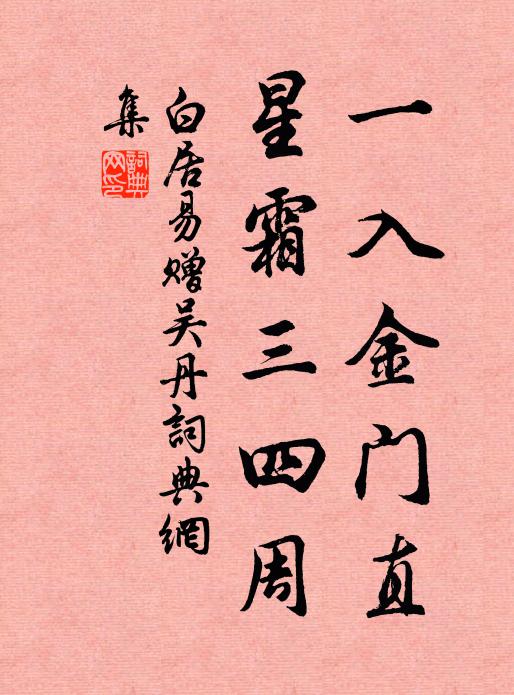 一入金门直
星霜三四周
白居易赠吴丹詞典網
集
詞典
网印